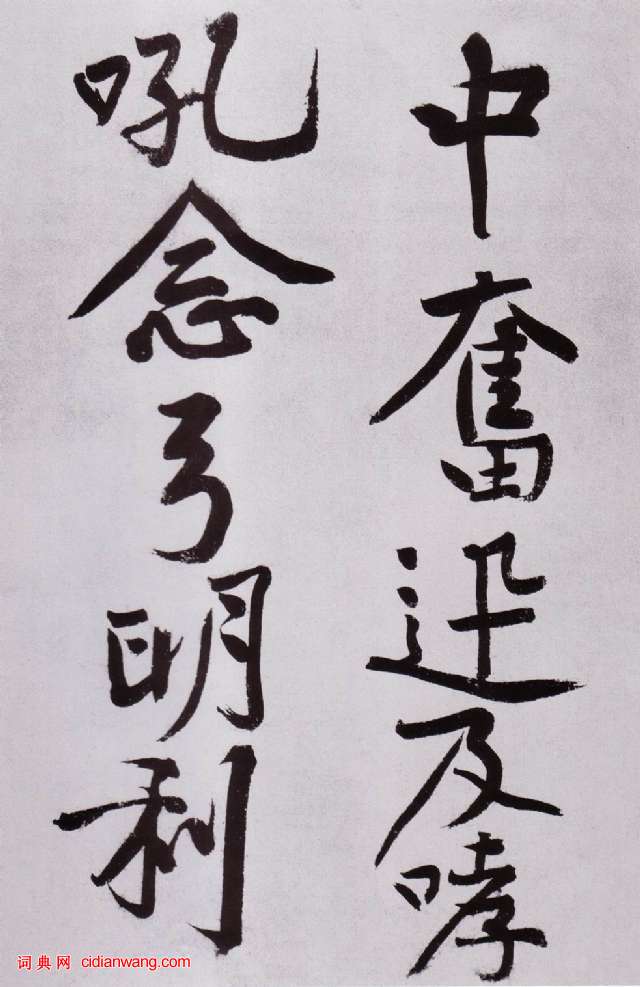 中奮迅及哮
吼念弓明利
词典网 cidianwang.com